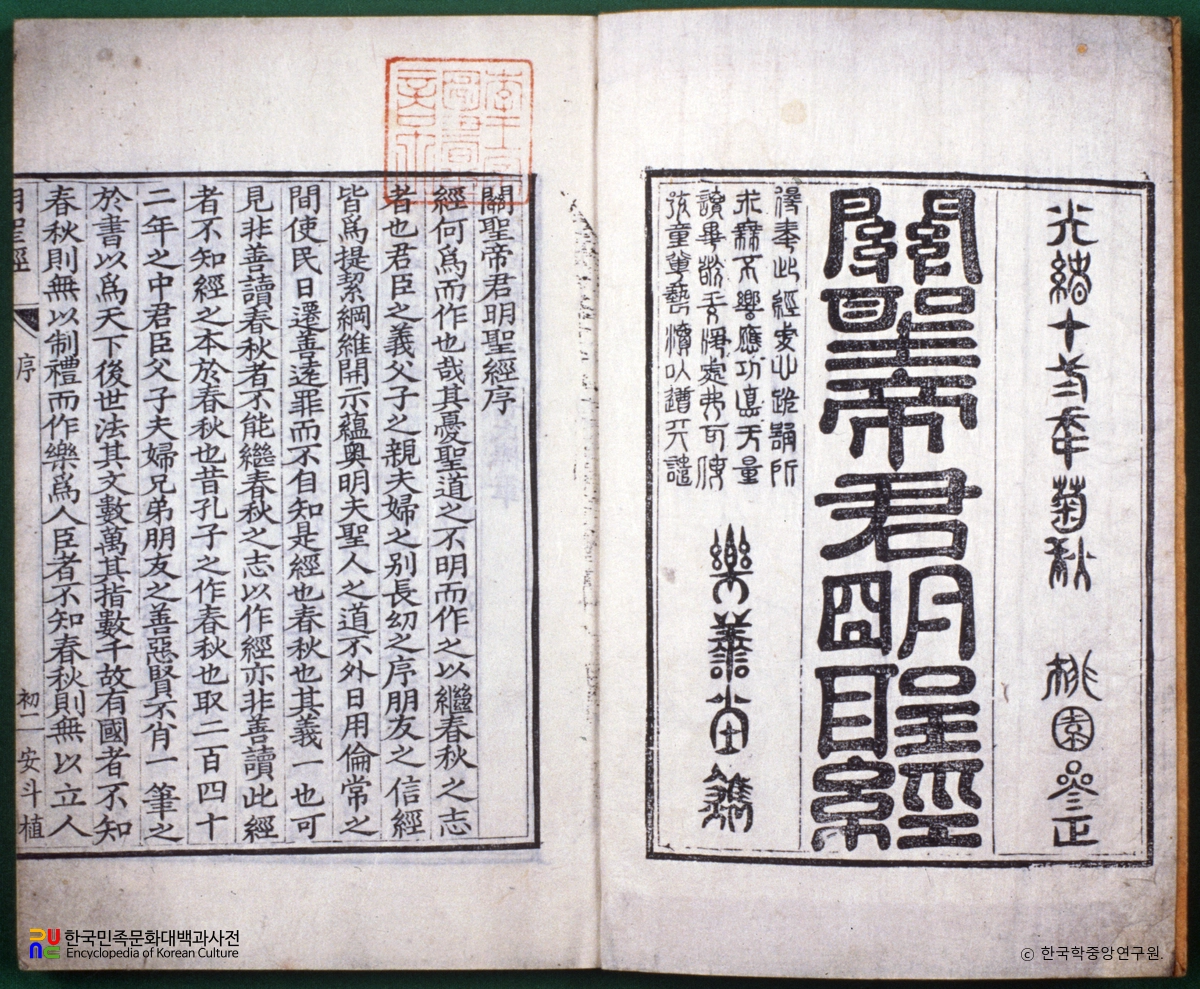 光緖十年菊秋 桃園正
關聖帝君明聖經
得奉此經安心跪誦所
求無不響應功德无量
讀畢敬淨處弗可使
孩童褻瀆以遭天譴
樂善堂鐫
關聖帝君明聖經序
經何爲而作也哉其憂聖道之不明而作之以繼春秋之志
者也君臣之義父子之親夫婦之别長幼之序朋友之信經
皆爲提絜綱維開示蘊奧明夫聖人之道不外日用倫常之
間使民日遷善遠罪而不自知是經也春秋也其義一也可
見非善讀春秋者不能繼春秋之志以作經亦非善讀此經
者不知經之本於春秋也昔孔子之作春秋也取二百四十
二年之中君臣父子夫婦兄弟朋友之善惡賢不肖一筆之
於書以爲天下後世法其文數萬其指數千故有國者不知
春秋則無以制禮而作樂爲人臣者不知春秋則無以立人
明聖經 序 初二 安斗植
한국민족문화대백과사전
Encyclopedia of Korean Culture
ⓒ 한국학중앙연구원.